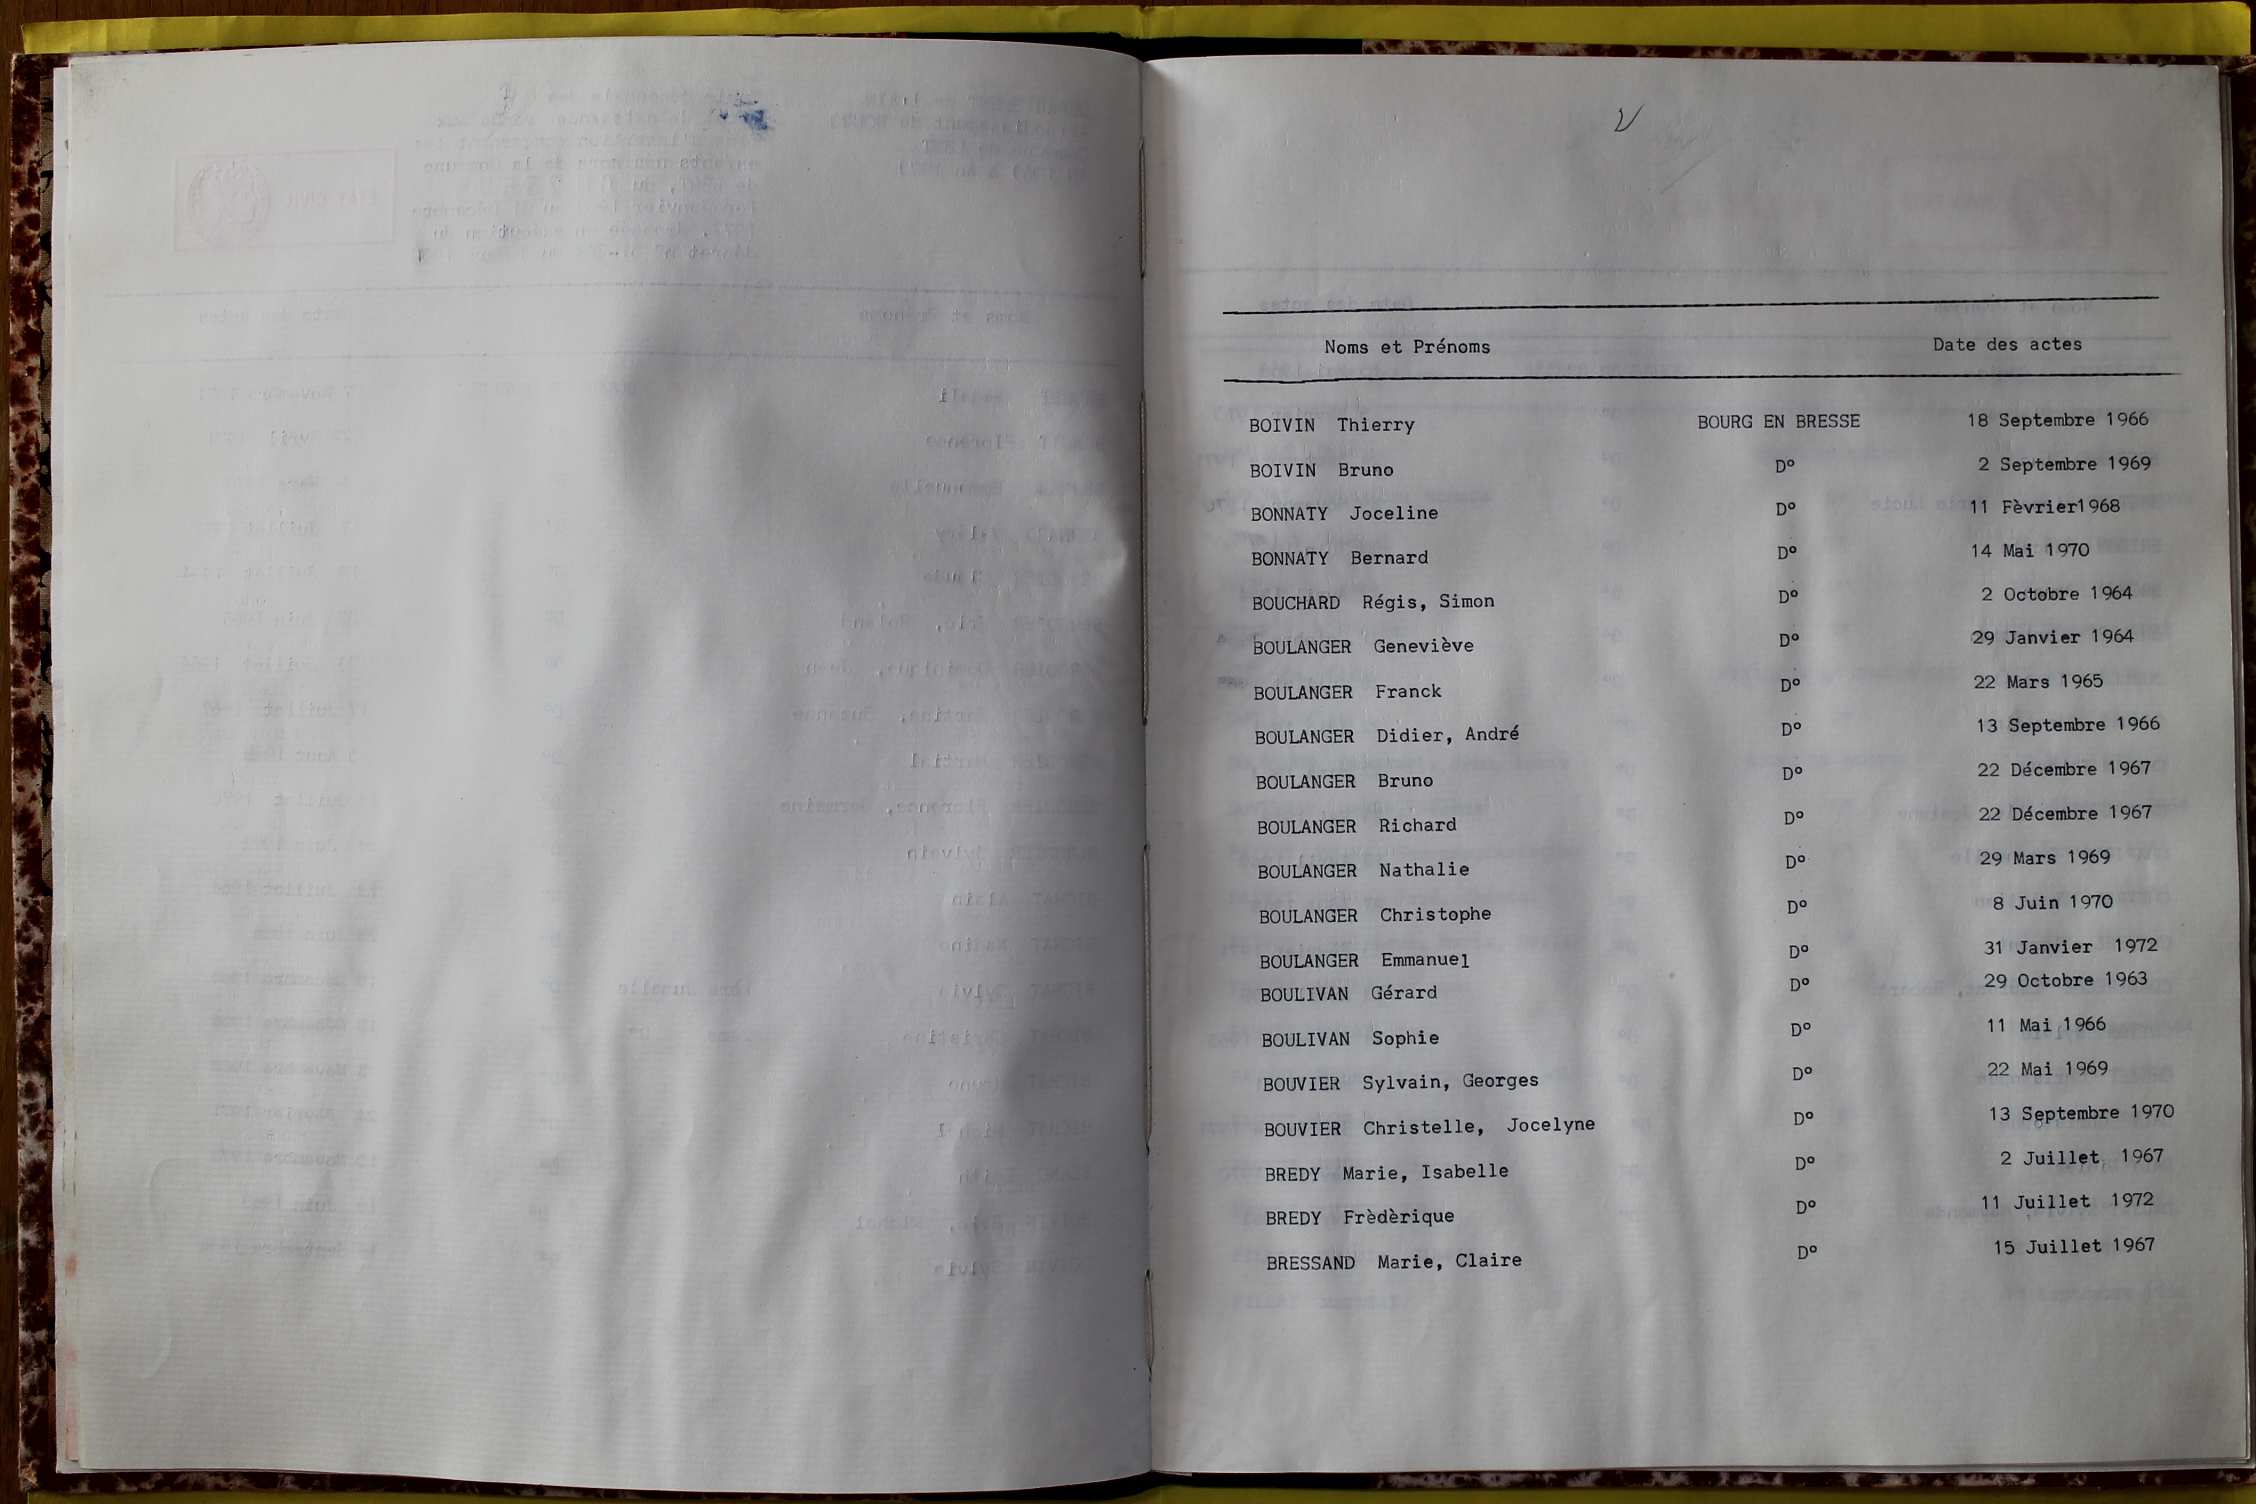 Noms et Prénoms Date des actes
BOIVIN Thierry BOURG EN BRESSE 18 Septembre 1966
BOIVIN Bruno D° 2 Septembre 1969
BONNATY Joceline D° 11 Fèvrier1968
BONNATY Bernard D° 14 Mai 1970
BOUCHARD Régis, Simon D° 2 Octobre 1964
BOULANGER Geneviève D° 29 Janvier 1964
BOULANGER Franck D° 22 Mars 1965
BOULANGER Didier, André D° 13 Septembre 1966
BOULANGER Bruno D° 22 Décembre 1967
BOULANGER Richard D° 22 Décembre 1967
BOULANGER Nathalie D° 29 Mars 1969
BOULANGER Christophe D° 8 Juin 1970
BOULANGER Emmanuel D° 31 Janvier 1972
BOULIVAN Gérard D° 29 Octobre 1963
BOULIVAN Sophie D° 11 Mai 1966
BOUVIER Sylvain, Georges D° 22 Mai 1969
BOUVIER Christelle, Jocelyne D° 13 Septembre 1970
BREDY Marie, Isabelle D° 2 Juillet 1967
BREDY Frèdèrique D° 11 Juillet 1972
BRESSAND Marie, Claire D° 15 Juillet 1967